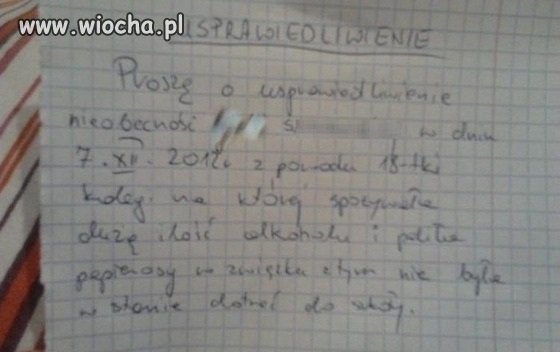 www.wiocha.pl
USPRAWIEDLIWIENIE
Proszę o usprawiedliwienie
nieobecność Ś w dniu
7.XII.2012r z powodu 18-tki
koleżki na której spożywała
dużą ilość alkoholu i paliła
papierosy w związku z tym nie była
w stanie dotrzeć do szkoły.